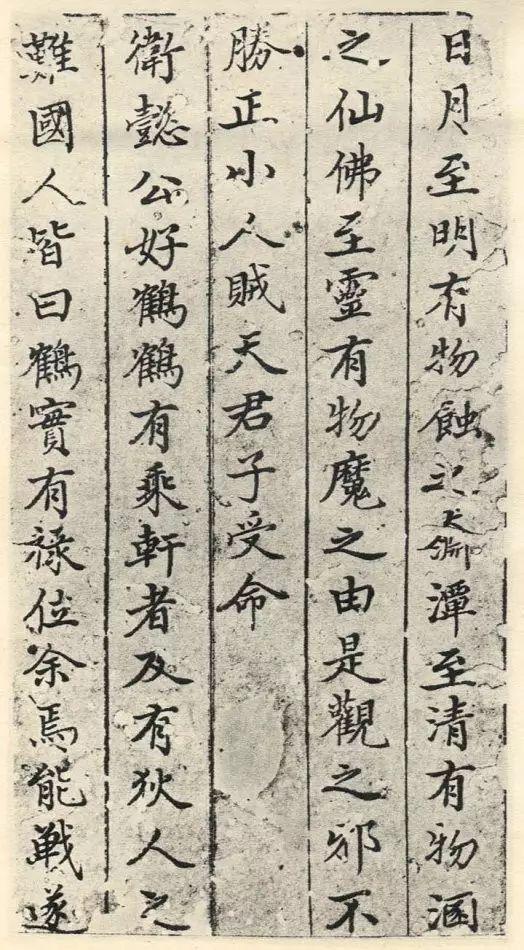 日月至明有物蝕之大淵潭至清有物涵
之仙佛至靈有物魔之由是觀之邪不
勝正小人賊天君子受命
衛懿公好鶴鶴有乘軒者及有狄人之
難國人皆曰鶴實有祿位余焉能戰遂